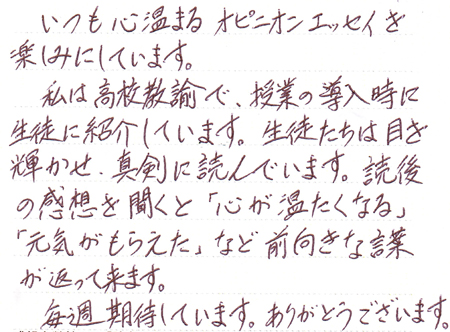 いつも心温まるオピニオンエッセイを
楽しみにしています。
私は高校教諭で、授業の導入時に
生徒に紹介しています。生徒たちは目を
輝かせ、真剣に読んでいます。読後
の感想を聞くと「心が温たくなる」
「元気がもらえた」など前向きな言葉
が返って来ます。
毎週期待しています。ありがとうございます。